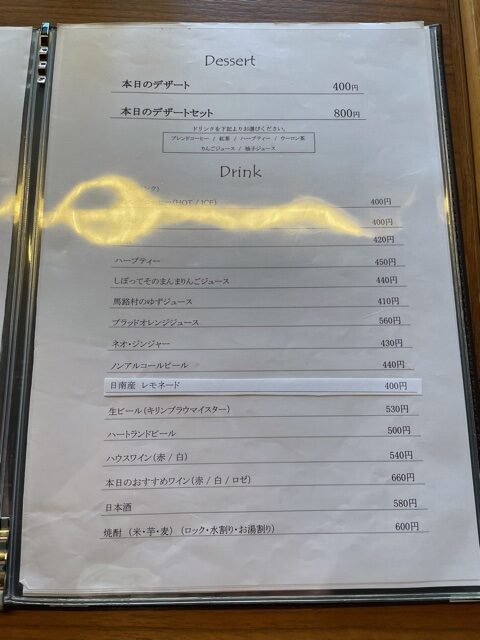 Dessert
本日のデザート 400円
本日のデザートセット 800円
ドリンクを下記よりお選びください。
ブレンドコーヒー / 紅茶 / ハーブティー / ウーロン茶
りんごジュース / 柚子ジュース
Drink
(HOT / ICE) 400円
400円
420円
ハーブティー 450円
しぼってそのまんまりんごジュース 440円
馬路村のゆずジュース 410円
ブラッドオレンジジュース 560円
ネオ・ジンジャー 430円
ノンアルコールビール 440円
日南産 レモネード 400円
生ビール(キリンブラウマイスター) 530円
ハートランドビール 500円
ハウスワイン(赤 / 白) 540円
本日のおすすめワイン(赤 / 白 / ロゼ) 660円
日本酒 580円
焼酎 (米・芋・麦) (ロック・水割り・お湯割り) 600円